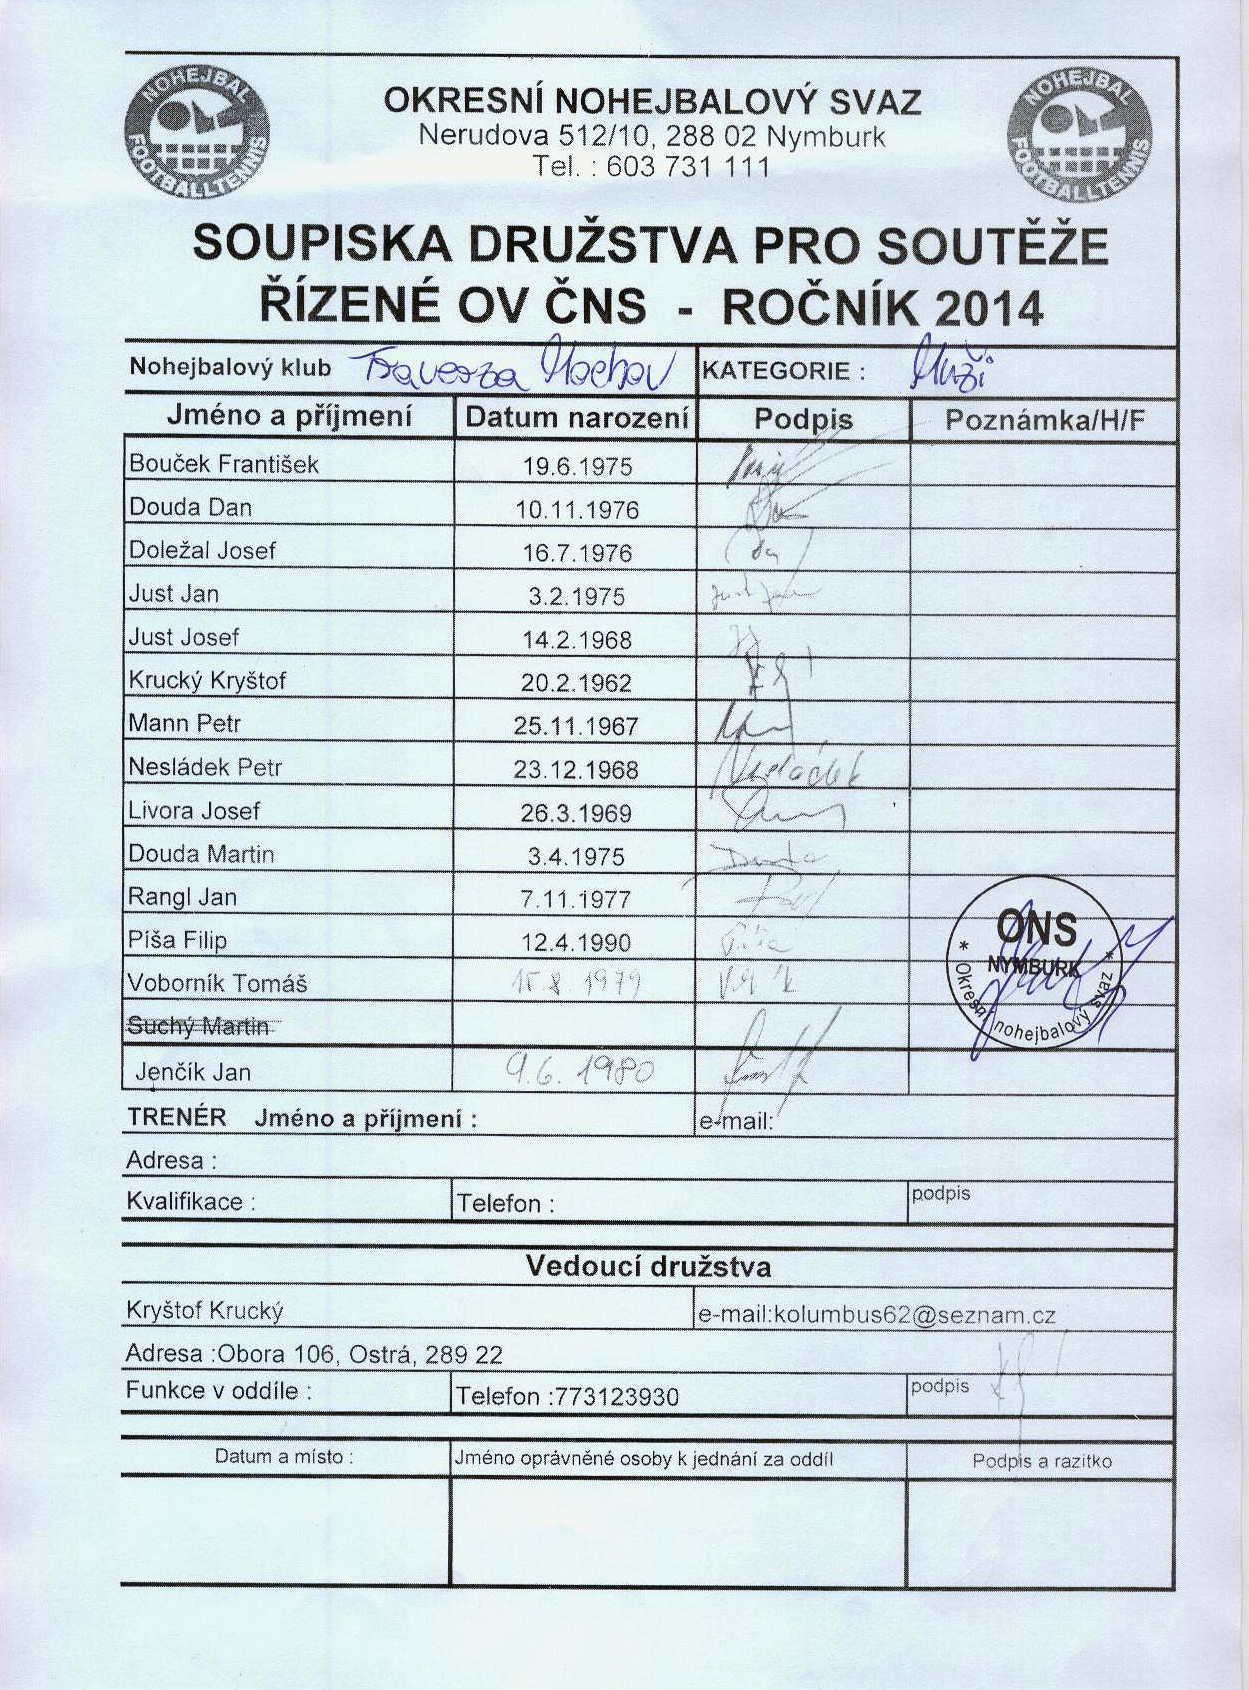 NOHEJBAL FOOTBALLTENNIS
OKRESNÍ NOHEJBALOVÝ SVAZ
Nerudova 512/10, 288 02 Nymburk
Tel. : 603 731 111
NOHEJBAL FOOTBALLTENNIS
SOUPISKA DRUŽSTVA PRO SOUTĚŽE
ŘÍZENÉ OV ČNS - ROČNÍK 2014
Nohejbalový klub Traverza Mochov KATEGORIE : Muži
Jméno a příjmení Datum narození Podpis Poznámka/H/F
Bouček František 19.6.1975
Douda Dan 10.11.1976
Doležal Josef 16.7.1976
Just Jan 3.2.1975 Just Jan
Just Josef 14.2.1968
Krucký Kryštof 20.2.1962
Mann Petr 25.11.1967
Nesládek Petr 23.12.1968 Nesládek
Livora Josef 26.3.1969
Douda Martin 3.4.1975 Douda
Rangl Jan 7.11.1977
Píša Filip 12.4.1990 Píša
Voborník Tomáš 15.8.1979
Suchý Martin
Jenčík Jan 9.6.1980
ONS
NYMBURK
* Okresní nohejbalový svaz *
TRENÉR Jméno a příjmení : e-mail:
Adresa :
Kvalifikace : Telefon : podpis
Vedoucí družstva
Kryštof Krucký e-mail:kolumbus62@seznam.cz
Adresa :Obora 106, Ostrá, 289 22
Funkce v oddíle : Telefon :773123930 podpis
Datum a místo : Jméno oprávněné osoby k jednání za oddíl Podpis a razítko